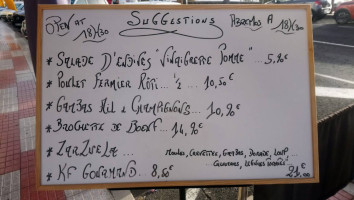 OPEN AT 18H30 SUGGESTIONS ABRIMOS A 18H30
* SALADE D'ENDIVES "VINAIGRETTE POMME" ... 5,90€
* POULET FERMIER RÔTI ½ ... 10,50€
* GAMBAS AIL & CHAMPIGNONS ... 10,90€
* BROCHETTE DE BOEUF ... 14,90€
* ZARZUELA ... MOULES, CREVETTES, GAMBAS, DORADE, LOUP...
21,00€
* KF GOURMAND. 8,50€